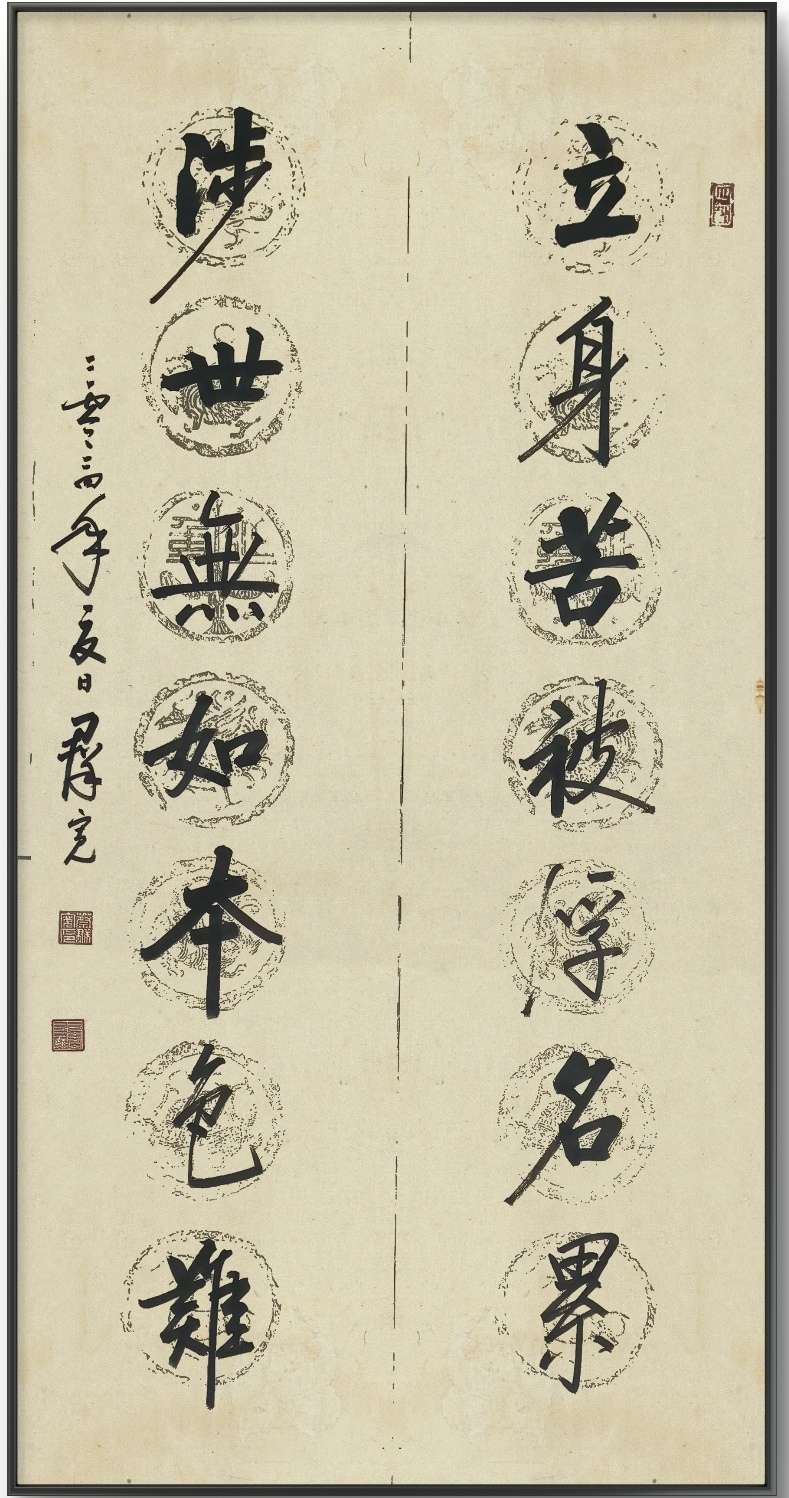 立身苦被浮名累
涉世無如本色難
二零二四年夏日